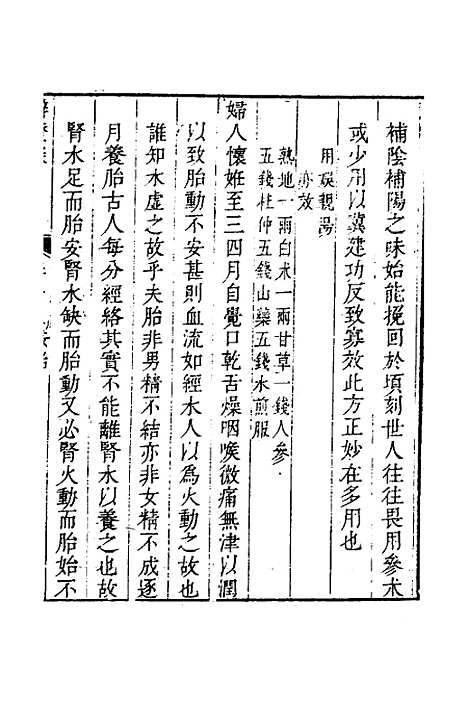 補陰補陽之味始能挽回於頃刻世人往往畏用參术
或少用以冀建功反致寡效此方正妙在多用也
用娱親湯
亦效
熟地一兩白术一兩甘草一錢人參
五錢杜仲五錢山藥五錢水煎服
婦人懷姙至三四月自覺口乾舌燥咽喉微痛無津以潤
以致胎動不安甚則血流如經水人以爲火動之故也
誰知水虚之故乎夫胎非男精不結亦非女精不成逐
月養胎古人每分經絡其實不能離腎水以養之也故
腎水足而胎安腎水缺而胎動又必腎火動而胎始不